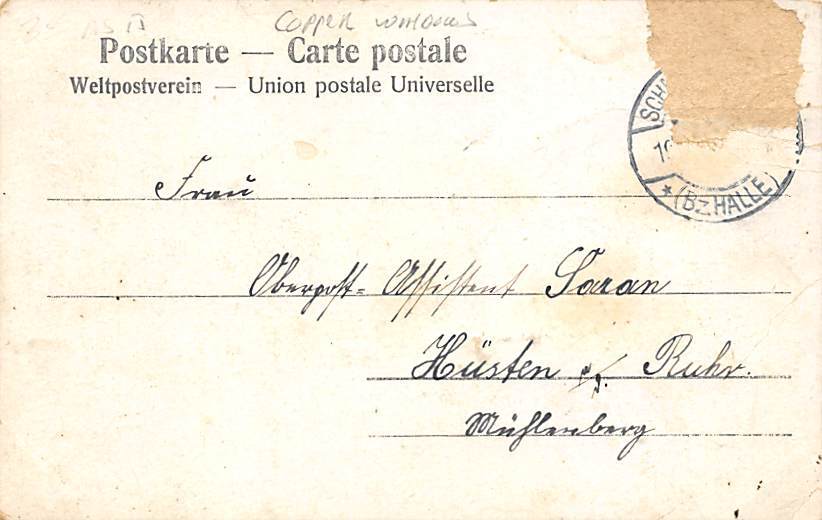 Copper windows
Postkarte — Carte postale
Weltpostverein — Union postale Universelle
SCH
* (Bz HALLE)
Frau
Oberpost= Assistent Saran
Hüsten a/d. Ruhr.
Mühlenberg